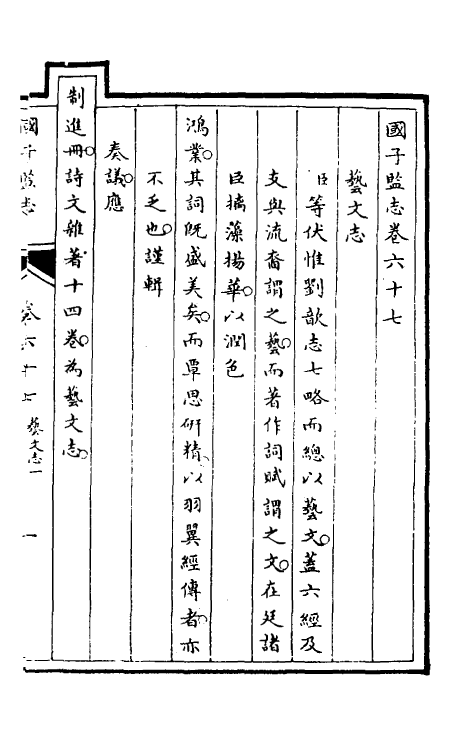 國子監志卷六十七
藝文志
臣等伏惟劉歆志七略而總以藝文。蓋六經及
支與流裔謂之藝。而著作詞賦謂之文。在廷諸
臣摛藻揚華。以潤色
鴻業。其詞既盛美矣。而覃思研精。以羽翼經傳者。亦
不乏也。謹輯
奏議。應
制進冊。詩文雜著十四卷。為藝文志。
國子監志
卷六十七 藝文志一 一